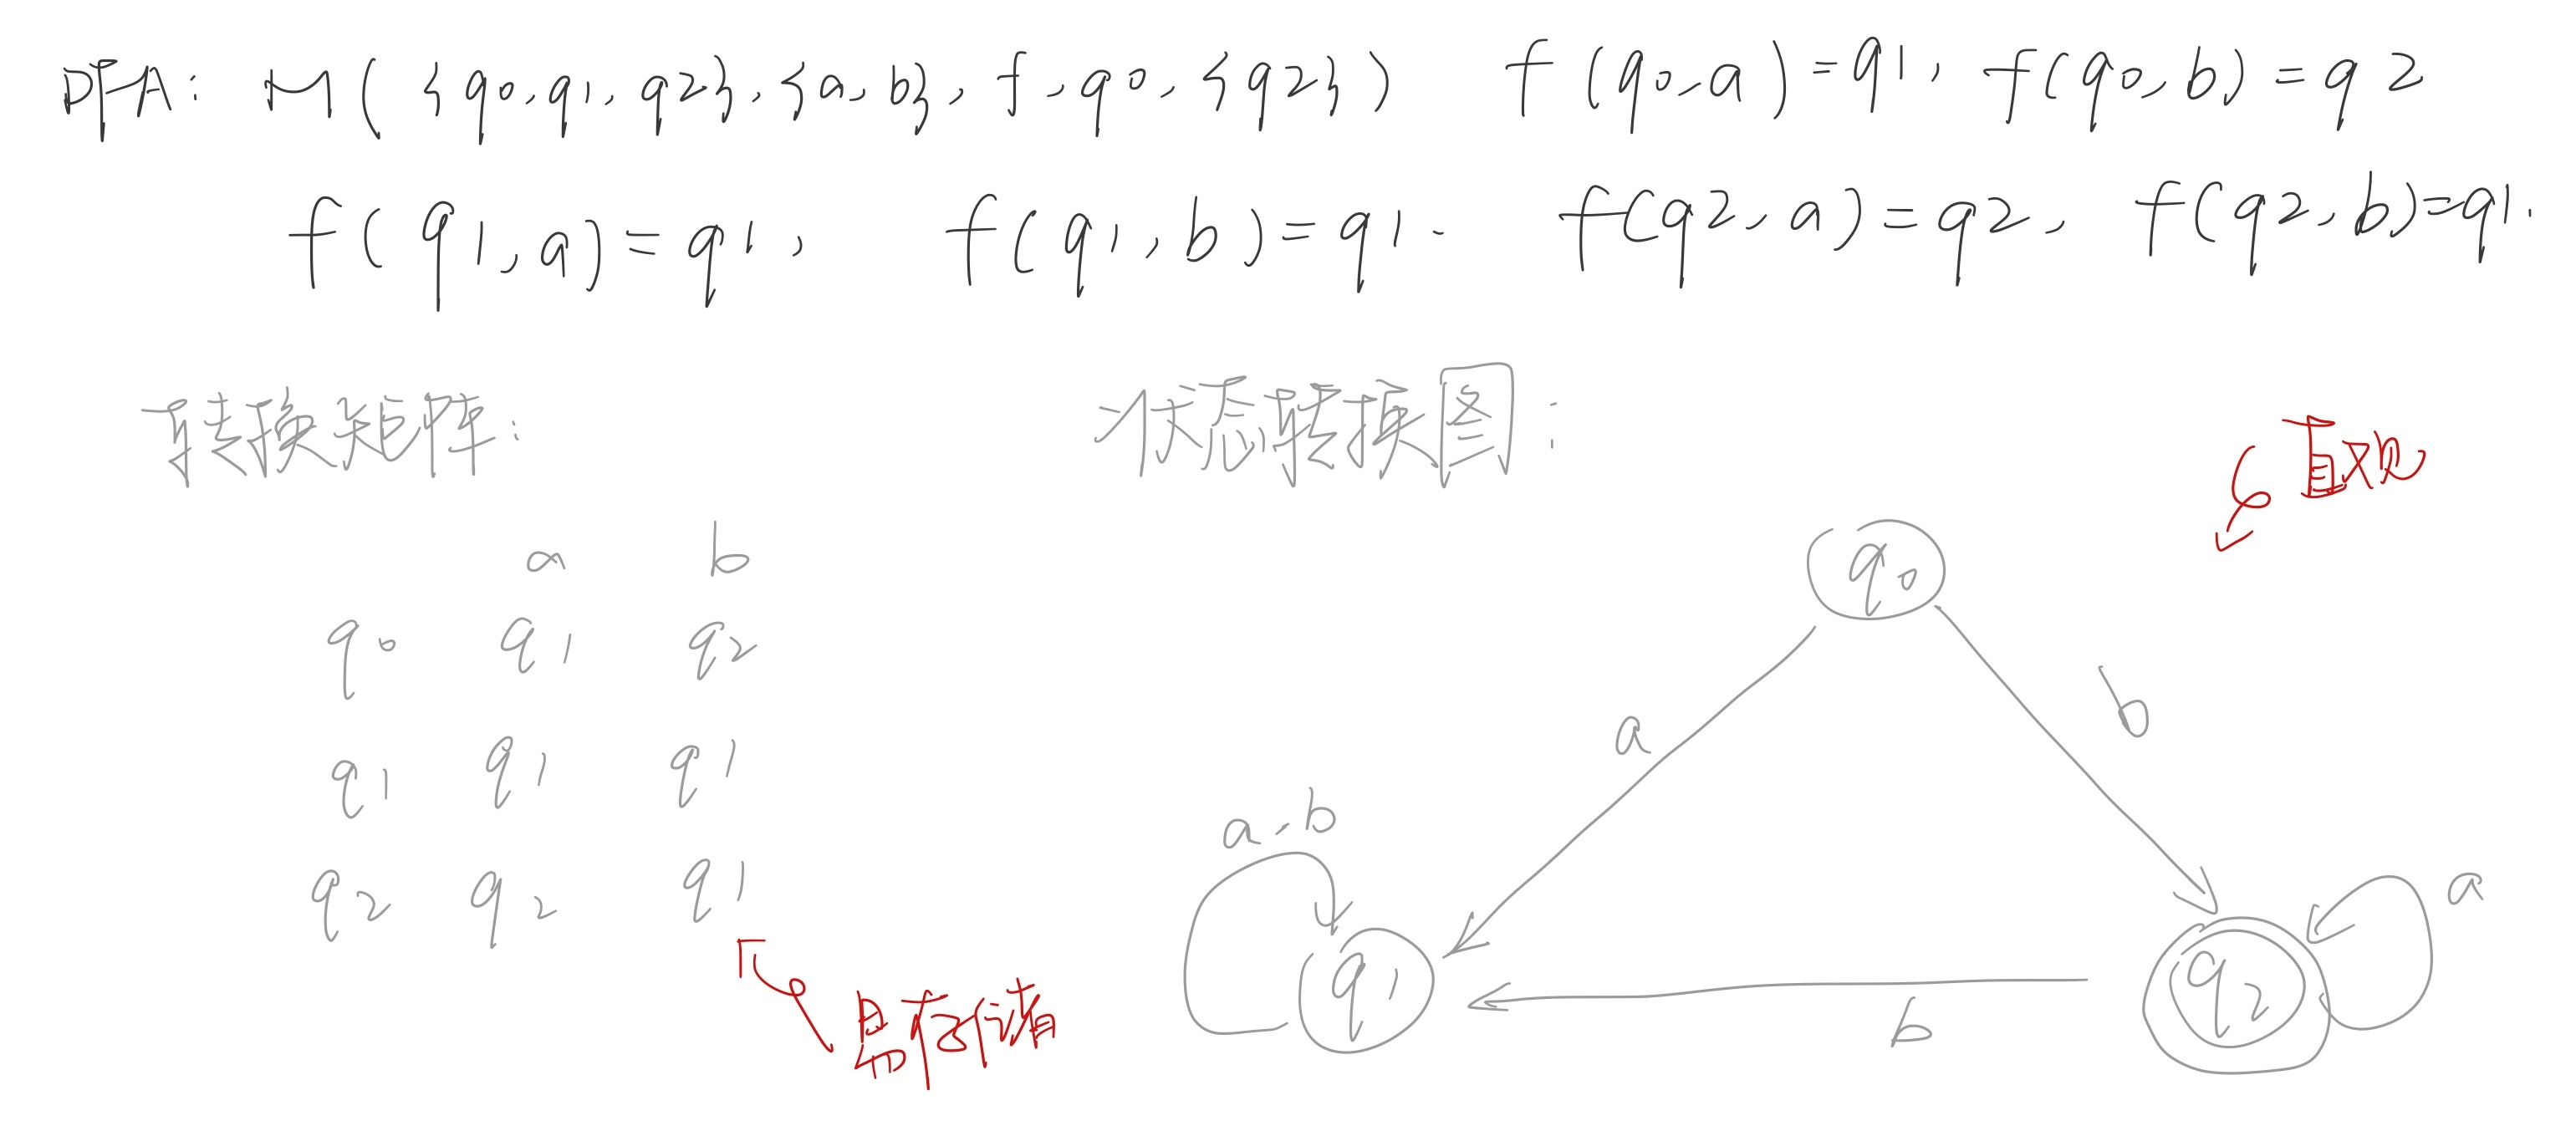 DFA: M({q0,q1,q2},{a,b},f,q0,{q2}) f(q0,a)=q1, f(q0,b)=q2
f(q1,a)=q1, f(q1,b)=q1. f(q2,a)=q2, f(q2,b)=q1.
转换矩阵:
a b
q0 q1 q2
q1 q1 q1
q2 q2 q1
易存储
状态转换图:
直观
q0
a
b
a,b
a
q1
q2
b